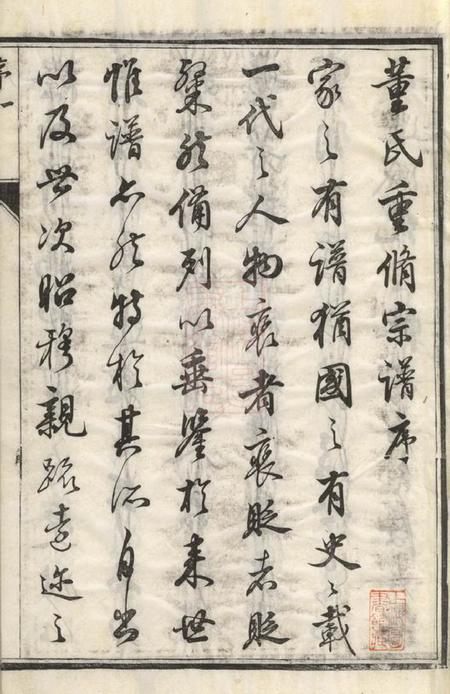 董氏重脩宗譜序
家之有譜猶國之有史〻載
一代之人物褒者褒貶者貶
粲然備列以垂鑒於来世
惟譜亦然特於其所自出
以及世次昭穆親疏遠迩之
序一